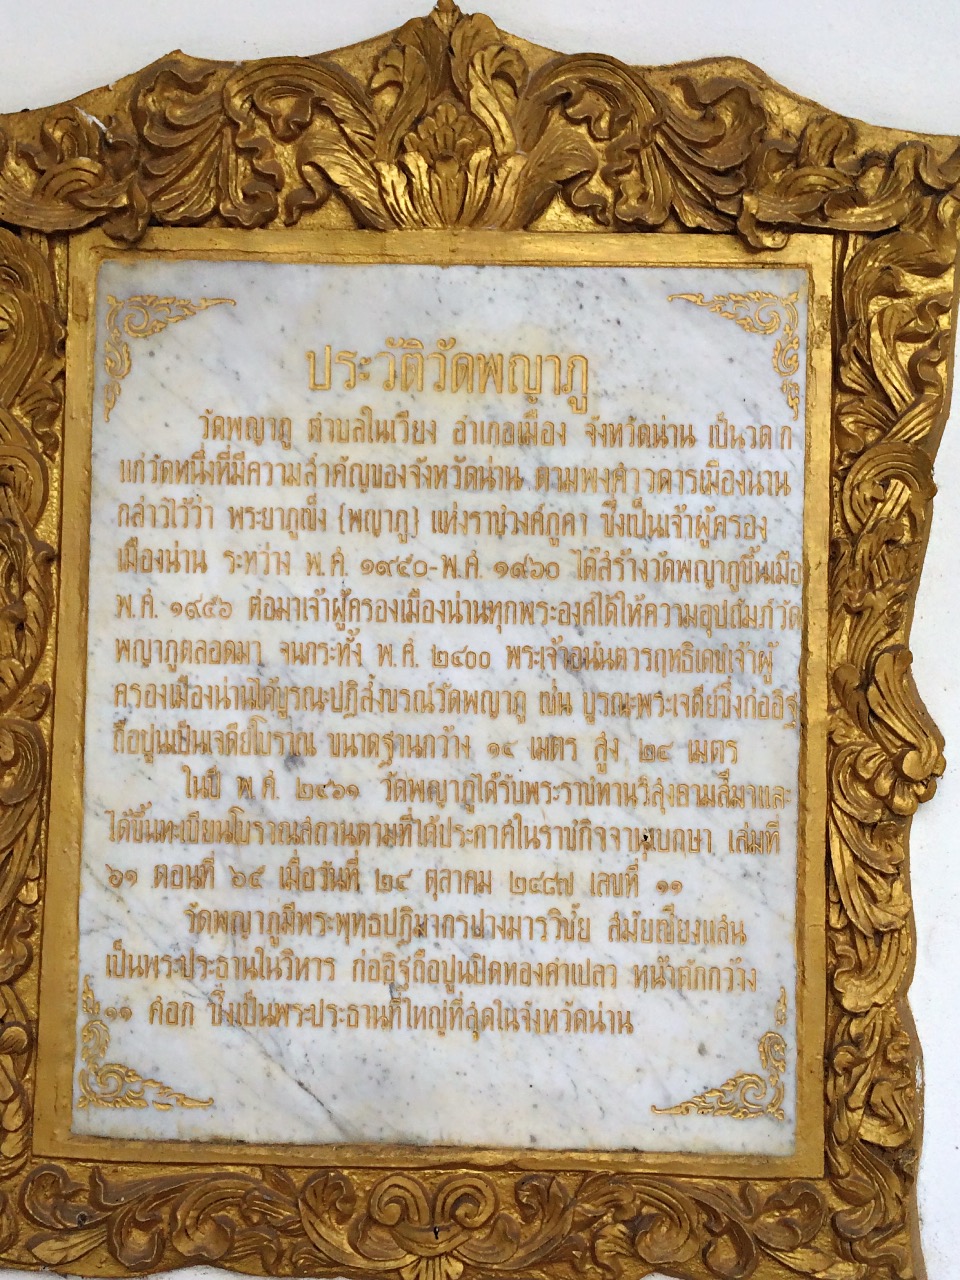 ประวัติวัดพญาภู
วัดพญาภู ตำบลในเวียง อำเภอเมือง จังหวัดน่าน เป็นวัดเก่า
แก่วัดหนึ่งที่มีความสำคัญของจังหวัดน่าน ตามพงศาวดารเมืองน่าน
กล่าวไว้ว่า พระยาภูเข็ง (พญาภู) แห่งราชวงศ์ภูคา ซึ่งเป็นเจ้าผู้ครอง
เมืองน่าน ระหว่าง พ.ศ. ๑๙๕๐-พ.ศ. ๑๙๖๐ ได้สร้างวัดพญาภูขึ้นเมื่อ
พ.ศ. ๑๙๕๖ ต่อมาเจ้าผู้ครองเมืองน่านทุกพระองค์ได้ให้ความอุปถัมภ์วัด
พญาภูตลอดมา จนกระทั้ง พ.ศ. ๒๔๐๐ พระเจ้าอนันตวรฤทธิเดชเจ้าผู้
ครองเมืองน่านได้บูรณะปฏิสังขรณ์วัดพญาภู เช่น บูรณะพระเจดีย์ซึ่งก่ออิฐ
ถือปูนเป็นเจดีย์โบราณ ขนาดฐานกว้าง ๑๔ เมตร สูง ๒๔ เมตร
ในปี พ.ศ. ๒๔๖๑ วัดพญาภูได้รับพระราชทานวิสุงคามสีมาและ
ได้ขึ้นทะเบียนโบราณสถานตามที่ได้ประกาศในราชกิจจานุเบกษา เล่มที่
๖๑ ตอนที่ ๖๕ เมื่อวันที่ ๒๔ ตุลาคม ๒๔๘๗ เลขที่ ๑๑
วัดพญาภูมีพระพุทธปฏิมากรปางมารวิชัย สมัยเชียงแสน
เป็นพระประธานในวิหาร ก่ออิฐถือปูนปิดทองคำเปลว หน้าตักกว้าง
๑๑ ศอก ซึ่งเป็นพระประธานที่ใหญ่ที่สุดในจังหวัดน่าน